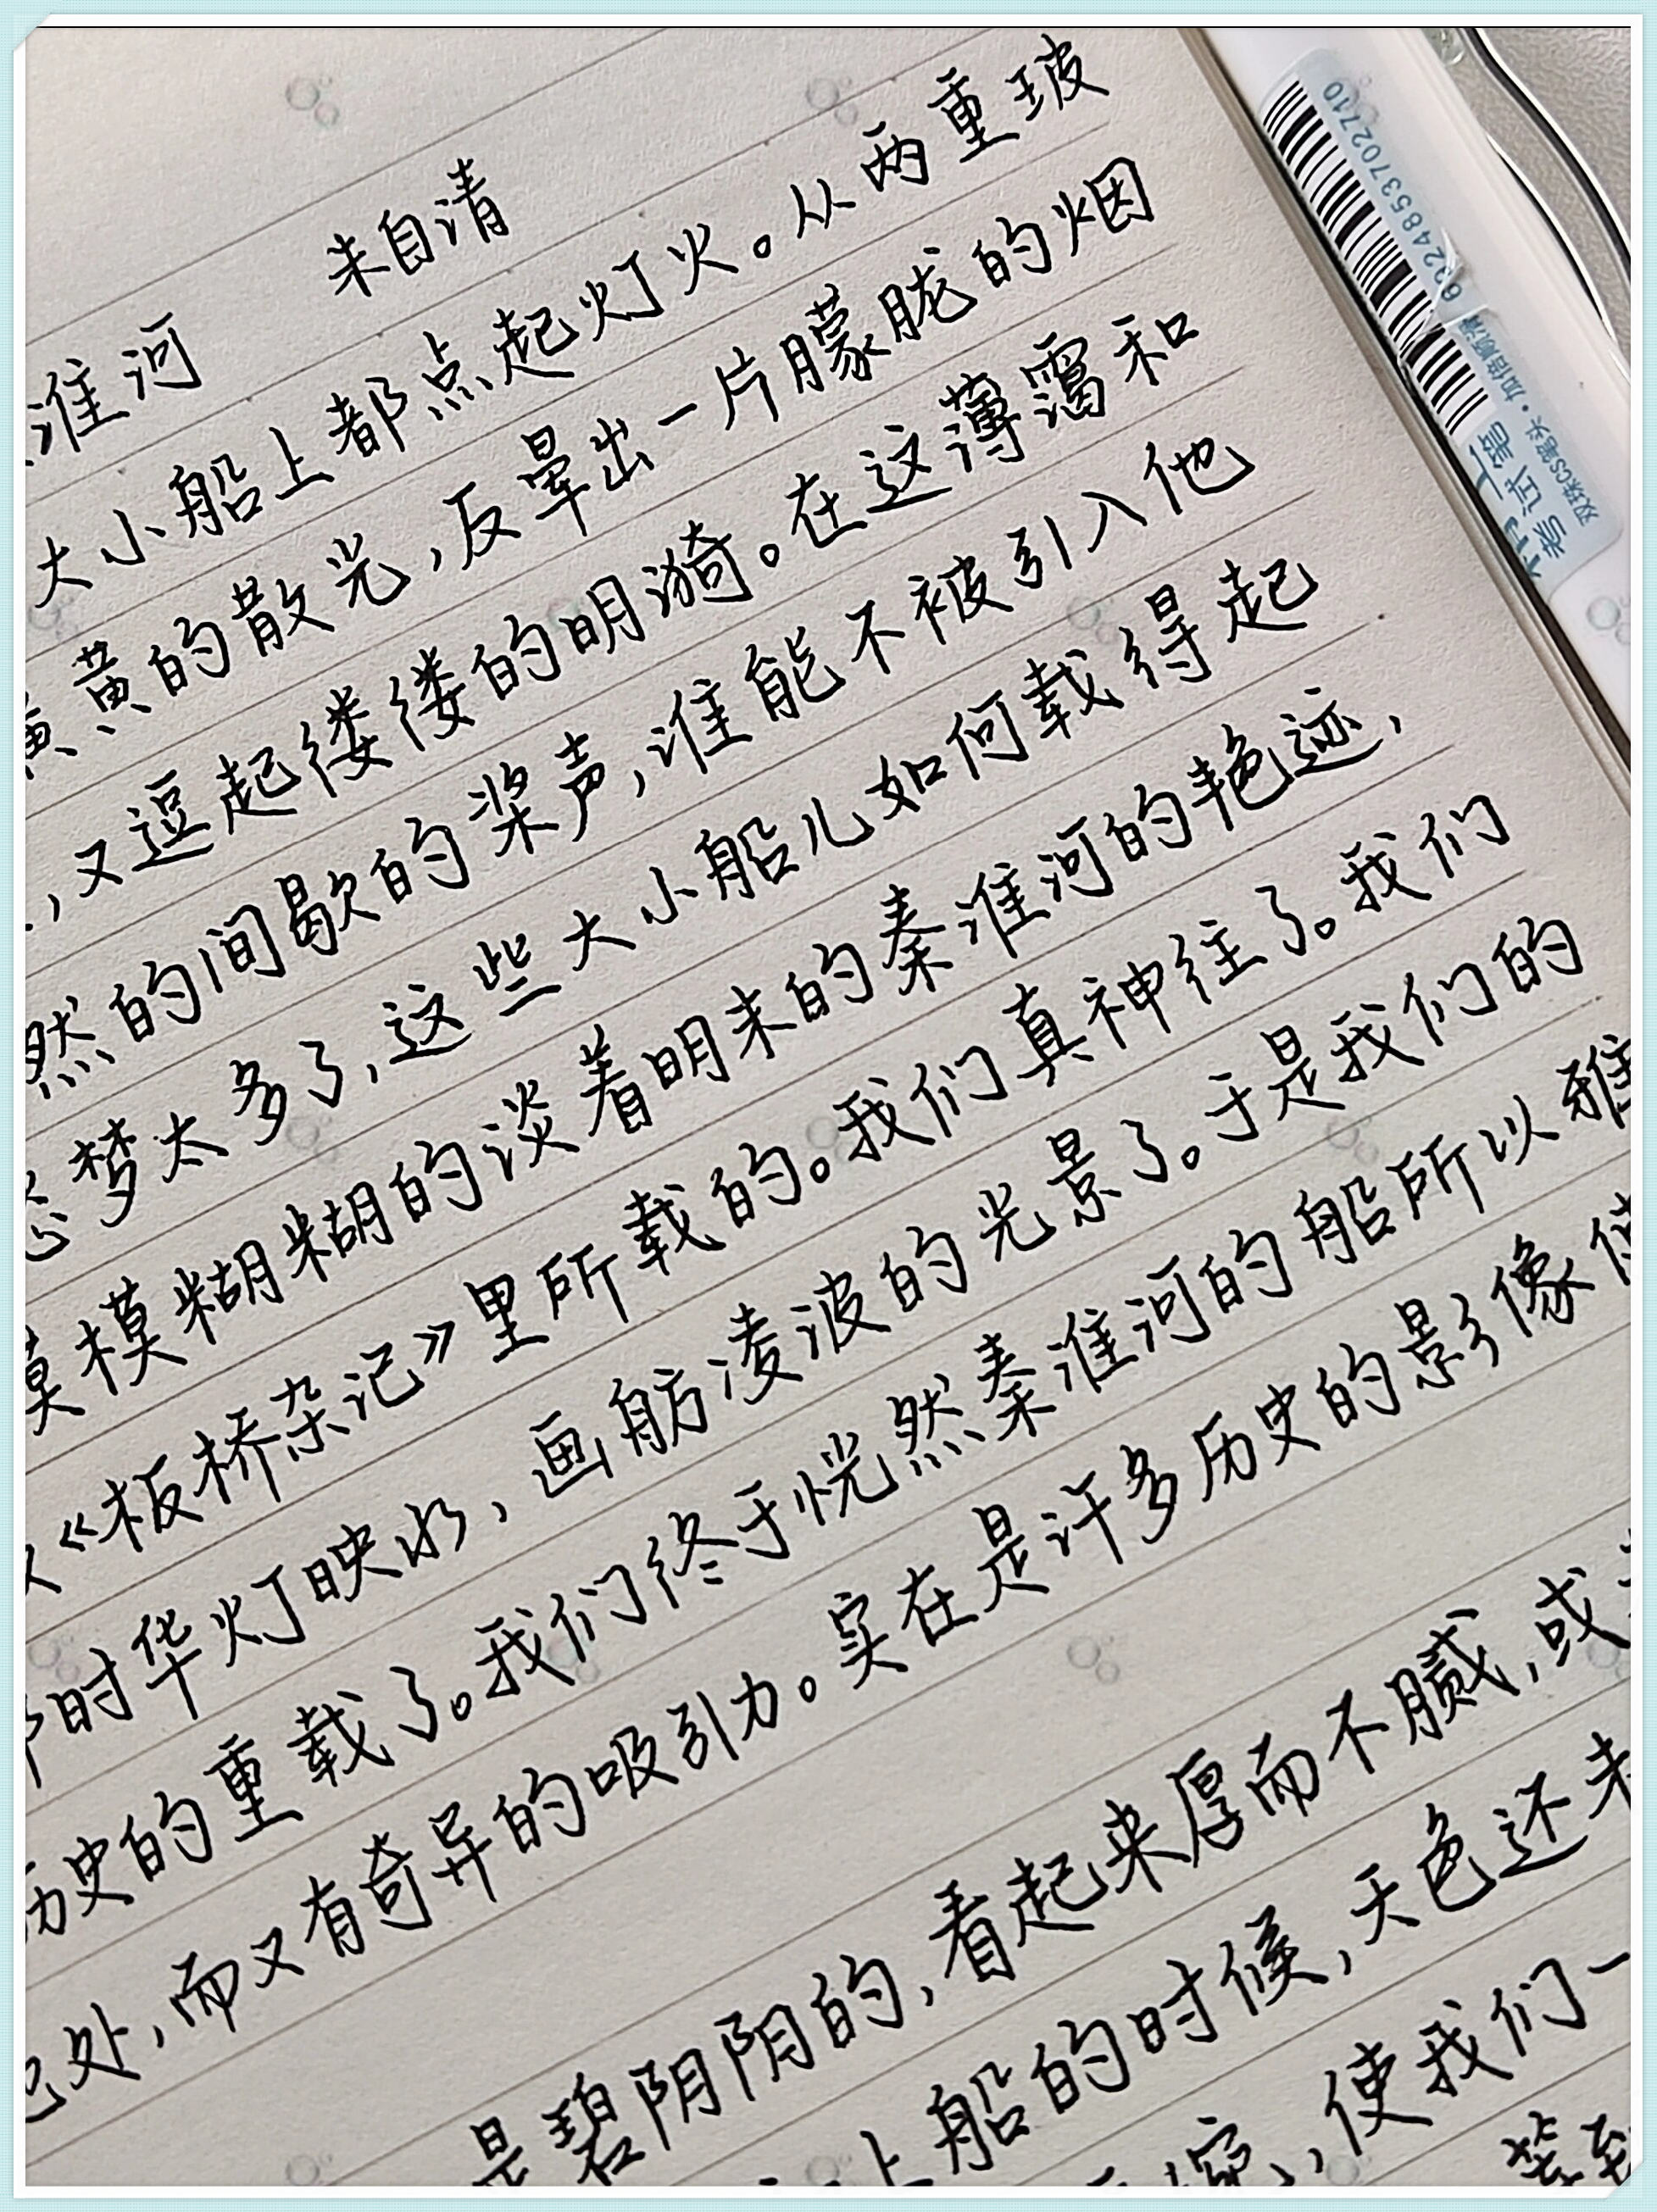 淮河 朱自清
大小船上都点起灯火。从两重玻
黄的散光,反晕出一片朦胧的烟
,又逗起缕缕的明漪。在这薄霭和
然的间歇的桨声,谁能不被引入他
梦太多了,这些大小船儿如何载得起
模糊糊的谈着明末的秦淮河的艳迹,
《板桥杂记》里所载的。我们真神往了。我们
时华灯映水,画舫凌波的光景了。于是我们的
历史的重载了。我们终于恍然秦淮河的船所以雅
处,而又有奇异的吸引力。实在是许多历史的影像使
是碧阴阴的,看起来厚而不腻,或
上船的时候,天色还未
,使我们一
等到
6922485370271
考试器
双珠CS笔头·加倍顺滑